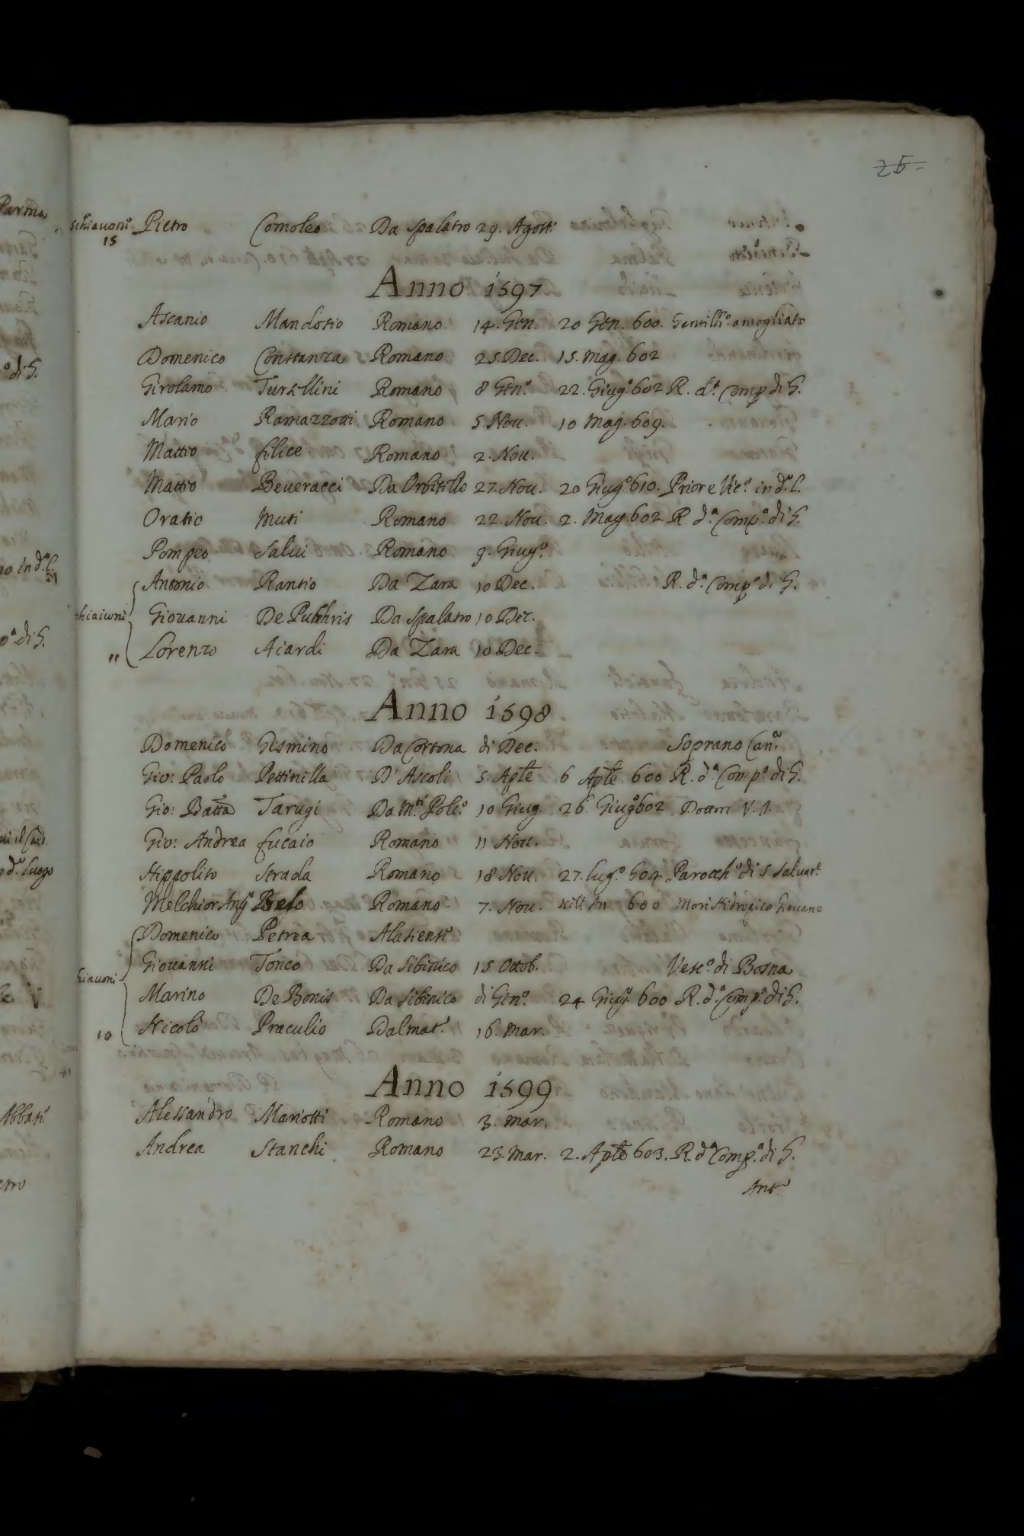 25
Schiavoni Pietro Comoleo Da Spalatro 29. Agost:
15
Anno 1597
Ascanio Mandosio Romano 14. Gen. 20 Gen. 600. Gentilh.º amogliato
Domenico Constanza Romano 25. Dec. 15. Mag. 602
Girolamo Tursellini Romano 8 Gen.º 22. Giug.º 602 R. d.ª Comp di G.
Mario Ramazzotti Romano 5 Nov. 10 Mag. 609.
Mattio felice Romano 2. Nov.
Mattio Beveracci Da Orbitello 27. Nov. 20 Giug.º 610. Priore e Vic.º in d.º C.
Oratio Muti Romano 22. Nov. 2. Mag 602. R d.ª Comp.ª di G.
Pompeo Salvi Romano 9. Giug.º
Antonio Rantio Da Zara 10 Dec. R. d.ª Comp.ª di G.
Schiavoni Giovanni De Pulchris Da Spalatro 10 Dec.
11 Lorenzo Aiardi Da Zara 10 Dec.
Anno 1598
Domenico Gismino Da Cortona di Dec. Soprano Can.º
Gio: Paolo Pettinilla D'Ascoli 5. Aple 6 Aple 600 R. d.ª Comp.ª di G.
Gio: Batta Tarugi Da M.te Pol.º 10 Giug. 26 Giug.º 602 Dottor V. I.
Gio: Andrea fucaio Romano 11 Nov.
Hippolito Strada Romano 18 Nov. 27. lug.º 604 Paroch.º di S Salvat.e
Melchior Ang.º Belo Romano 7. Nov. 600 Mori Hidropico Giovane
Domenico Petrea Alatient.º
Giovanni Tonco Da Sibinico 15 Ottob. Vesc.º di Bosna
Schiavoni Marino De Bonis Da Sibinico di Gen.º 24 Giug.º 600 R. d.ª Comp.ª di G.
10 Nicolò Praculio Dalmat.º 16. Mar.
Anno 1599
Alessandro Mariotti Romano 3. Mar.
Andrea Stanchi Romano 23. Mar. 2. Aple 603. R. d.ª Comp.ª di G.
Ant.º